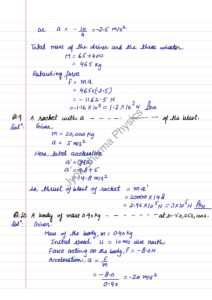 or a = -10/4 = -2.5 m/s²
Total mass of the driver and the three wheeler
M = 65+400
= 465 kg
Retarding force
F = ma
= 465(-2.5)
= -1162.5 N
= -1.16×10³ = 1.2×10³ N Ans
Q.9 A rocket with a - - - - - of the blast.
Sol: Given,
m = 20,000 kg
a = 5 m/s²
Here, total acceleration
a' = g+a
= 9.8+5
= 14.8 m/s²
so, thrust of blast of rocket = ma'
= 20000×14.8
= 2.96×10⁵ N = 3×10⁵ N Ans
Q.10 A body of mass 0.40 kg - - - - - at t=-5s, 25s, 100s.
Sol: Given:
Mass of the body, m = 0.40 kg
Initial speed u = 10 m/s due north,
Force acting on the body, F = -8.0 N
Acceleration, a = F/m
= -8.0/0.40 = -20 m/s²
Physics